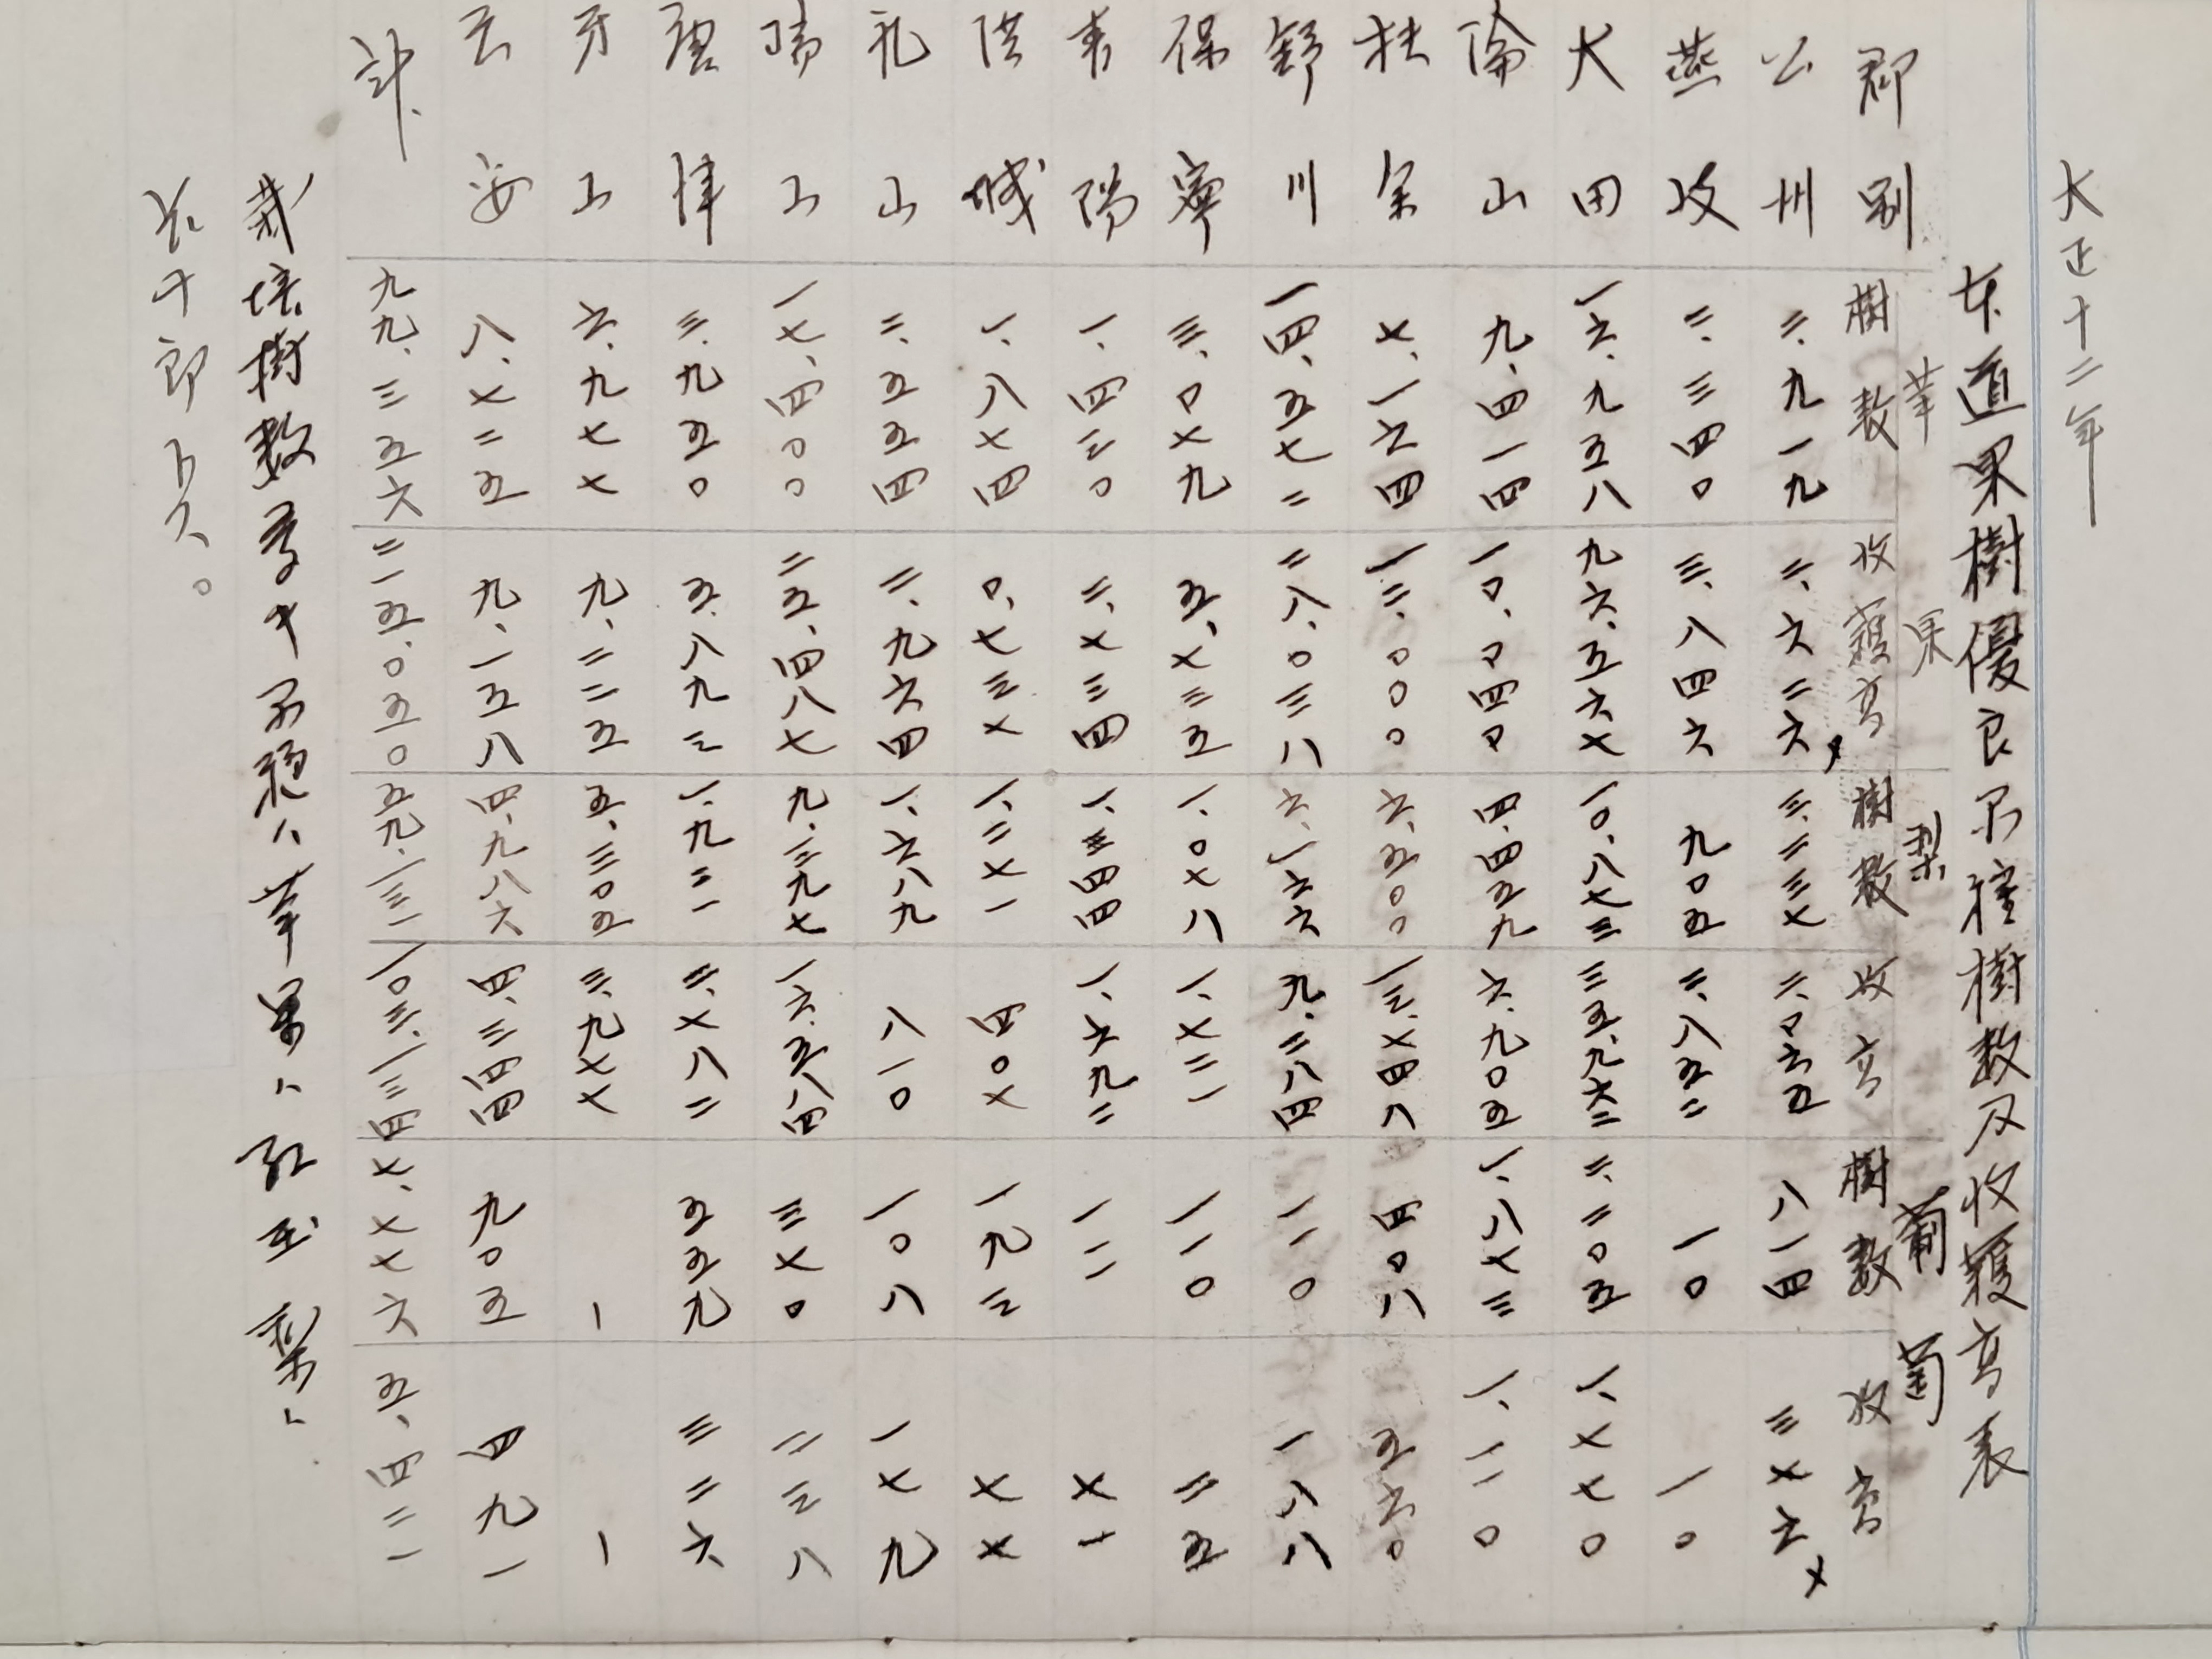 大正十二年
本道果樹優良品種樹数及收穫高表
苹果 梨 葡萄
郡別 樹数 收穫高 樹数 收高 樹数 收高
公州 二、九一九 二、六二六 三、二三七 二、〇六五 八一四 三七六
燕岐 二、三四〇 三、八四六 九〇五 二、八五二 一〇 一〇
大田 一六、九五八 九六、五六七 一〇、八七三 三五、九六二 二、二〇五 一、七七〇
論山 九、四一四 一〇、〇四〇 四、四五九 六、九〇五 一、八七三 一、一一〇
扶余 七、一六四 一二、〇〇〇 六、五〇〇 一三、七四八 四〇八 五六〇
舒川 一四、五七二 二八、〇三八 六、一六六 九、二八四 一一〇 一八八
保寧 三、〇七九 五、七三五 一、〇七八 一、七二一 一一〇 二五
青陽 一、四三〇 二、七三四 一、三四四 一、六九二 一一一 七一
洪城 一、八七四 〇、七三七 一、二七一 四〇七 一九三 七七
礼山 二、五五四 二、九六四 一、六八九 八一〇 一〇八 一七九
瑞山 一七、四〇〇 二五、四八七 九、三九七 一六、五八四 三七〇 二三八
唐津 三、九五〇 五、八九三 一、九二一 二、七八二 五五九 三二六
牙山 六、九七七 九、二二五 五、三〇五 三、九七七 ｜ ｜
天安 八、七二五 九、一五八 四、九八六 四、三四四 九〇五 四九一
計、 九九、三五六 二一五、〇五〇 五九、一三一 一〇三、一三四 七、七七六 五、四二一
栽培樹数多キ品種ハ苹果ハ紅玉梨ハ
長十郎トス。